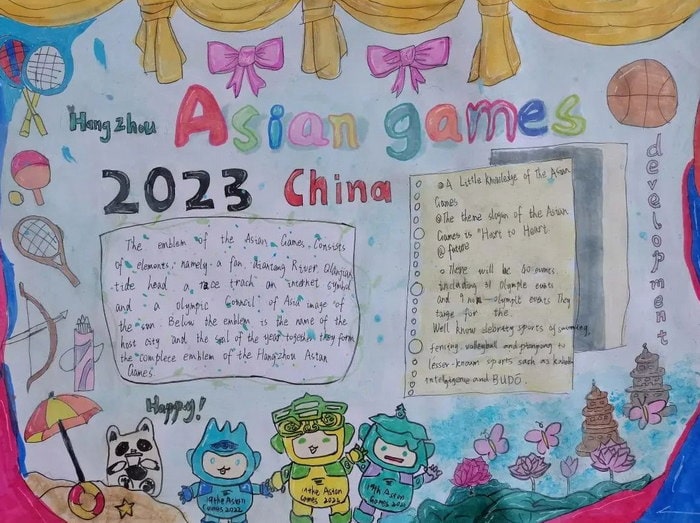 Hangzhou
Asian games
2023 China
development
The emblem of the Asian Games. Consists
of elements, namely a fan, Qiantang River, Qianjian
tide head a race track an internet symbol
and a olympic Council of Asia image of
the sun. Below the emblem is the name of the
host city and the seal of the year togeth, they form
the complece emblem of the Hangzhou Asian
Games
A Little knowledge of The Asian
Games
The theme slogan of the Asian
Games is "Heart to Heart
@ future
There will be 40 events
including 31 Olympic events
and 9 non-olympic events They
targe for the
Well know celebrity sports of swimming,
fencing, volleyball and pingpong to
lesser-known sports such as
and BUDO.
Happy!
19the Asian
Games 2022
19the Asian
Games 2023
19th Asian
Games 2023